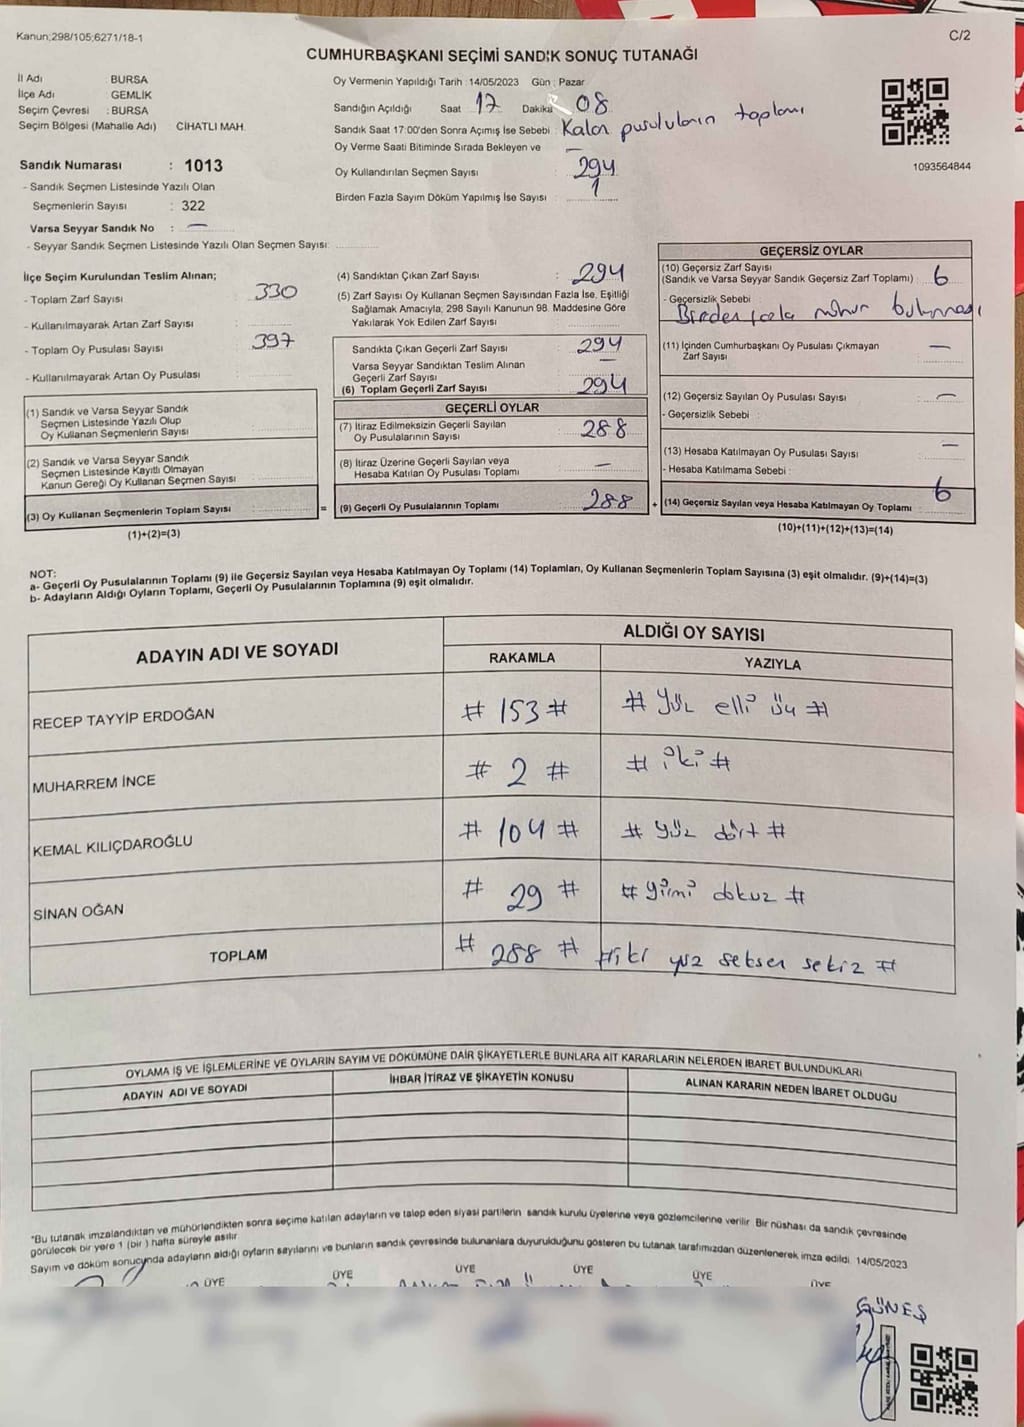 Kanun;298/105;6271/18-1
C/2
CUMHURBAŞKANI SEÇİMİ SANDIK SONUÇ TUTANAĞI
İl Adı : BURSA
İlçe Adı : GEMLİK
Seçim Çevresi : BURSA
Seçim Bölgesi (Mahalle Adı) CİHATLI MAH.
Oy Vermenin Yapıldığı Tarih : 14/05/2023 Gün : Pazar
Sandığın Açıldığı Saat 17 Dakika 08
Sandık Saat 17:00'den Sonra Açımış İse Sebebi : Kalan pusuluların toplamı
Oy Verme Saati Bitiminde Sırada Bekleyen ve
Oy Kullandırılan Seçmen Sayısı : 294
Birden Fazla Sayım Döküm Yapılmış İse Sayısı : 1
1093564844
Sandık Numarası : 1013
- Sandık Seçmen Listesinde Yazılı Olan
Seçmenlerin Sayısı : 322
Varsa Seyyar Sandık No : —
- Seyyar Sandık Seçmen Listesinde Yazılı Olan Seçmen Sayısı:
İlçe Seçim Kurulundan Teslim Alınan;
- Toplam Zarf Sayısı : 330
- Kullanılmayarak Artan Zarf Sayısı :
- Toplam Oy Pusulası Sayısı : 397
- Kullanılmayarak Artan Oy Pusulası :
(1) Sandık ve Varsa Seyyar Sandık
Seçmen Listesinde Yazılı Olup
Oy Kullanan Seçmenlerin Sayısı
(2) Sandık ve Varsa Seyyar Sandık
Seçmen Listesinde Kayıtlı Olmayan
Kanun Gereği Oy Kullanan Seçmen Sayısı
(3) Oy Kullanan Seçmenlerin Toplam Sayısı
(1)+(2)=(3)
=
(4) Sandıktan Çıkan Zarf Sayısı : 294
(5) Zarf Sayısı Oy Kullanan Seçmen Sayısından Fazla İse, Eşitliği
Sağlamak Amacıyla; 298 Sayılı Kanunun 98. Maddesine Göre
Yakılarak Yok Edilen Zarf Sayısı
Sandıkta Çıkan Geçerli Zarf Sayısı : 294
Varsa Seyyar Sandıktan Teslim Alınan
Geçerli Zarf Sayısı : —
(6) Toplam Geçerli Zarf Sayısı : 294
GEÇERLİ OYLAR
(7) İtiraz Edilmeksizin Geçerli Sayılan
Oy Pusulalarının Sayısı : 288
(8) İtiraz Üzerine Geçerli Sayılan veya
Hesaba Katılan Oy Pusulası Toplamı : —
(9) Geçerli Oy Pusulalarının Toplamı : 288
+
GEÇERSİZ OYLAR
(10) Geçersiz Zarf Sayısı
(Sandık ve Varsa Seyyar Sandık Geçersiz Zarf Toplamı) : 6
- Geçersizlik Sebebi :
Birden fazla mühür bulunması
(11) İçinden Cumhurbaşkanı Oy Pusulası Çıkmayan
Zarf Sayısı : —
(12) Geçersiz Sayılan Oy Pusulası Sayısı : —
- Geçersizlik Sebebi :
(13) Hesaba Katılmayan Oy Pusulası Sayısı : —
- Hesaba Katılmama Sebebi :
(14) Geçersiz Sayılan veya Hesaba Katılmayan Oy Toplamı : 6
(10)+(11)+(12)+(13)=(14)
NOT:
a- Geçerli Oy Pusulalarının Toplamı (9) ile Geçersiz Sayılan veya Hesaba Katılmayan Oy Toplamı (14) Toplamları, Oy Kullanan Seçmenlerin Toplam Sayısına (3) eşit olmalıdır. (9)+(14)=(3)
b- Adayların Aldığı Oyların Toplamı, Geçerli Oy Pusulalarının Toplamına (9) eşit olmalıdır.
ADAYIN ADI VE SOYADI
ALDIĞI OY SAYISI
RAKAMLA YAZIYLA
RECEP TAYYİP ERDOĞAN # 153 # # Yüz elli üç #
MUHARREM İNCE # 2 # # iki #
KEMAL KILIÇDAROĞLU # 104 # # yüz dört #
SİNAN OĞAN # 29 # # yirmi dokuz #
TOPLAM # 288 # # iki yüz seksen sekiz #
OYLAMA İŞ VE İŞLEMLERİNE VE OYLARIN SAYIM VE DÖKÜMÜNE DAİR ŞİKAYETLERLE BUNLARA AİT KARARLARIN NELERDEN İBARET BULUNDUKLARI
ADAYIN ADI VE SOYADI İHBAR İTİRAZ VE ŞİKAYETİN KONUSU ALINAN KARARIN NEDEN İBARET OLDUĞU
*Bu tutanak imzalandıktan ve mühürlendikten sonra seçime katılan adayların ve talep eden siyasi partilerin sandık kurulu üyelerine veya gözlemcilerine verilir. Bir nüshası da sandık çevresinde
görülecek bir yere 1 (bir) hafta süreyle asılır
Sayım ve döküm sonucunda adayların aldığı oyların sayılarını ve bunların sandık çevresinde bulunanlara duyurulduğunu gösteren bu tutanak tarafımızdan düzenlenerek imza edildi. 14/05/2023
ÜYE ÜYE ÜYE ÜYE ÜYE ÜYE
GÜNEŞ